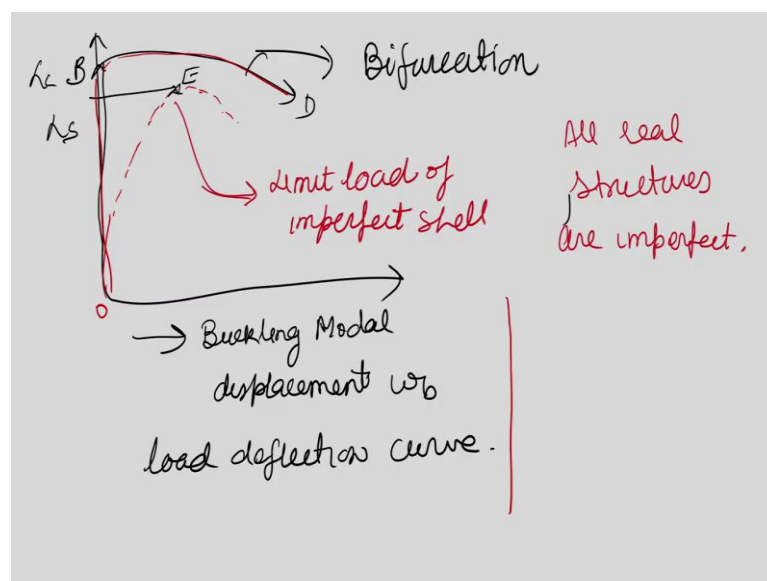 λc B
E
D
λs
O
Bifurcation
Limit load of
imperfect shell
All real
structures
are imperfect.
→ Buckling Modal
displacement wb
load deflection curve.